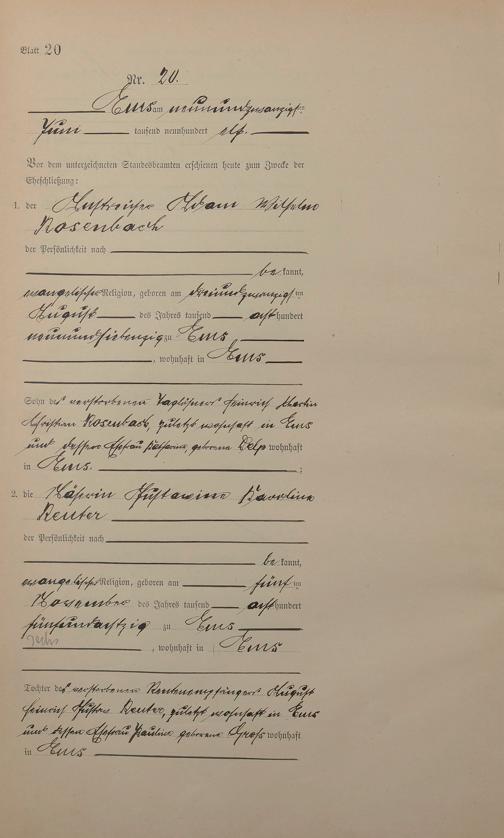 Blatt 20
Nr. 20.
Ems am neunundzwanzigsten
Juni tausend neunhundert elf.
Vor dem unterzeichneten Standesbeamten erschienen heute zum Zwecke der
Eheschließung:
1. der Anstreicher Adam Wilhelm
Rosenbach
der Persönlichkeit nach
be kannt,
evangelischer Religion, geboren am dreiundzwanzigsten
August des Jahres tausend acht hundert
neunundsiebenzig zu Ems
, wohnhaft in Ems
Sohn des verstorbenen Taglöhners Heinrich Martin
Christian Rosenbach, zuletzt wohnhaft in Ems
und dessen Ehefrau Katharine, geborene Delp wohnhaft
in Ems. ;
2. die Näherin Gustavine Karoline
Reuter
der Persönlichkeit nach
be kannt,
evangelischer Religion, geboren am fünften
November des Jahres tausend acht hundert
fünfundachtzig zu Ems
sechs
, wohnhaft in Ems
Tochter des verstorbenen Rentenempfängers August
Heinrich Gustav Reuter, zuletzt wohnhaft in Ems
und dessen Ehefrau Pauline geborene Groß wohnhaft
in Ems